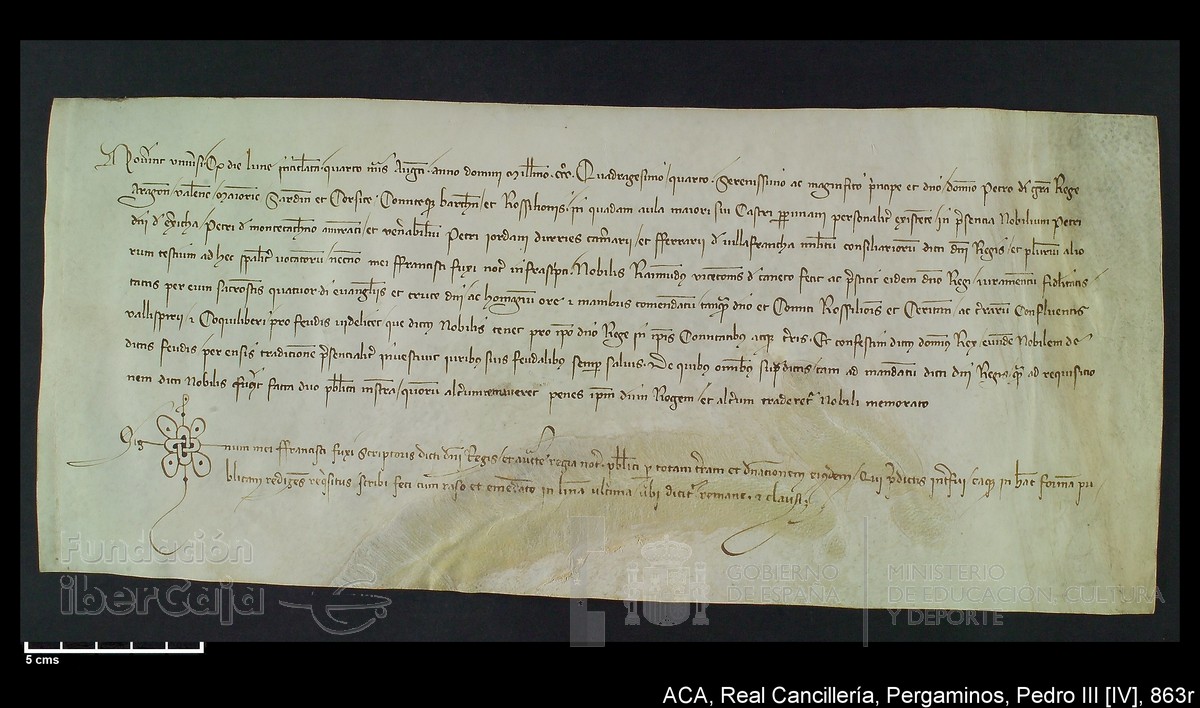 Noverint universi Q die lune intitulata quarto mensis Augusti anno domini Millesimo CCC Quadragesimo quarto Serenissimo ac magnifico principe et domino domino Petro dei gratia Rege
Aragonum Valencie Maiorice Sardinie et Corsice Comiteque Barchinone et Rossilionis in quadam aula maiori sui Castri perpiniani personaliter existente in presencia Nobilium Petri
domini de exericha Petri de montecatheno amirati et venerabilium Petri iordani durries camerarii et fferrarii de villafrancha militum consiliariorum dicti domini Regis et plurium alio
rum testium ad hec specialiter vocatorum necnon mei ffrancisci fuxi notarii infrascripti Nobilis Raimundus vicecomes de caneto fecit ac prestitit eidem domino Regi iuramentum fidelitatis
tactis per eum sacrosanctis quatuor dei evangeliis et cruce domini ac homagium ore et manibus comendatum tanquam domino et Comiti Rossilionis et Ceritanie ac terrarum Confluentis
vallispirii et Coquiliberi pro feudis videlicet que dictus Nobilis tenet pro ipso domino Rege in ipsis Comitatibus atque terris Et confestim dictus dominus Rex eundem Nobilem de
dictis feudis per ensis tradicionem presencialiter investivit iuribus suis feudalibus semper salvis De quibus omnibus supradictis tam ad mandatum dicti domini Regis quam ad requisicio
nem dicti Nobilis fuerunt facta duo publica instrumenta quorum alterum remaneret penes ipsum dominum Regem et alterum traderetur Nobili memorato
Sig num mei ffrancisci fuxi Scriptoris dicti domini Regis et auctoritate regia notarii publici per totam terram et dominationem eiusdem Qui predictis interfui eaque in hanc formam pu
blicam redigens requisitus scribi feci cum raso et emendato in linea ultima ubi dicitur remane et clausi
Fundación
iberCaja
GOBIERNO
DE ESPAÑA
MINISTERIO
DE EDUCACIÓN, CULTURA
Y DEPORTE
5 cms
ACA, Real Cancillería, Pergaminos, Pedro III [IV], 863r